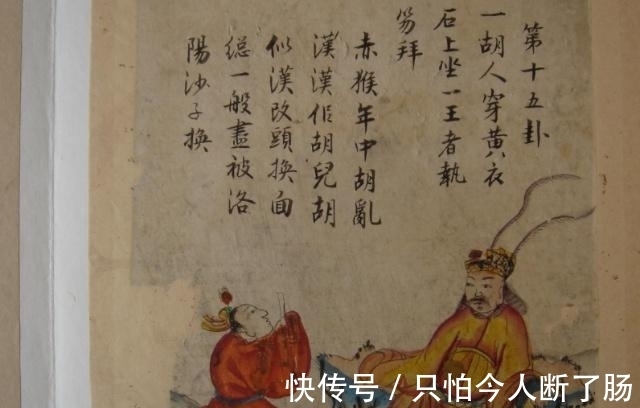 第十五卦
一胡人穿黃衣
石上坐一王者執
笏拜
赤猴年中胡亂
漢漢佀胡兒胡
似漢改頭換面
総一般盡被洛
陽沙子換
快传号 / 只怕今人断了肠